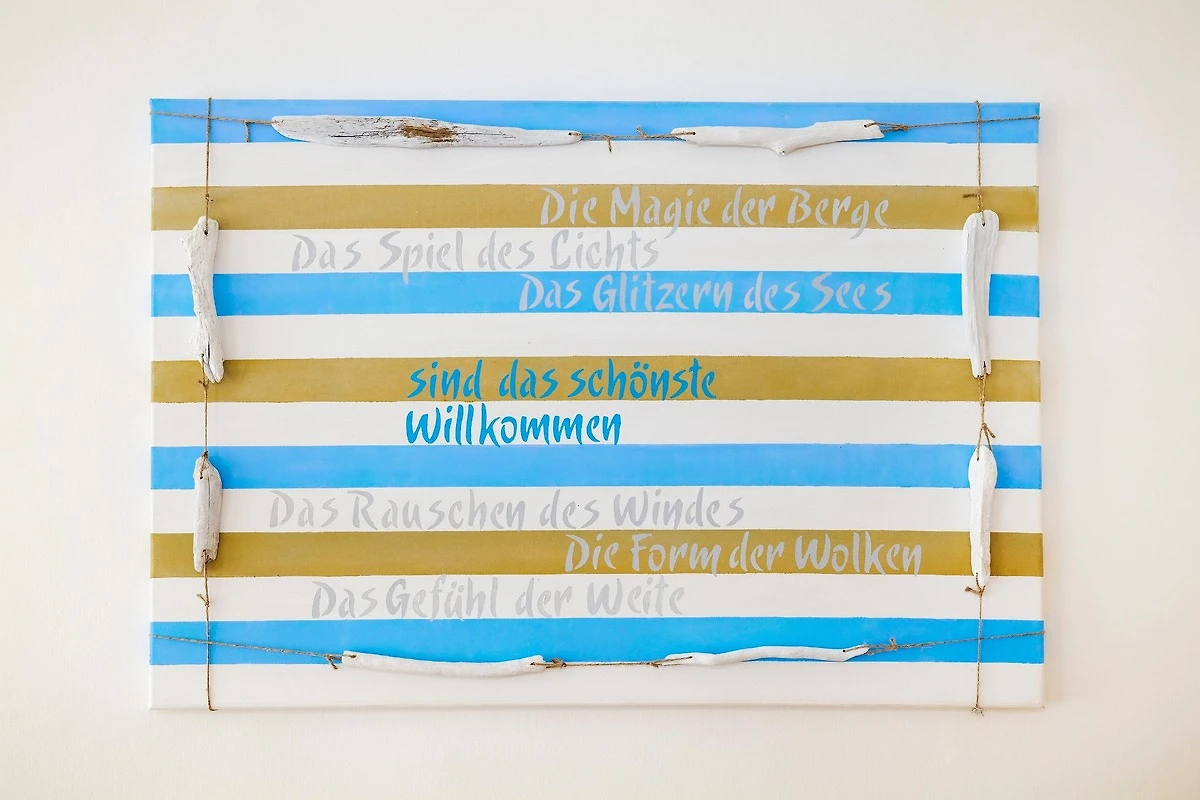 Die Magie der Berge
Das Spiel des Lichts
Das Glitzern des Sees
sind das schönste
Willkommen
Das Rauschen des Windes
Die Form der Wolken
Das Gefühl der Weite